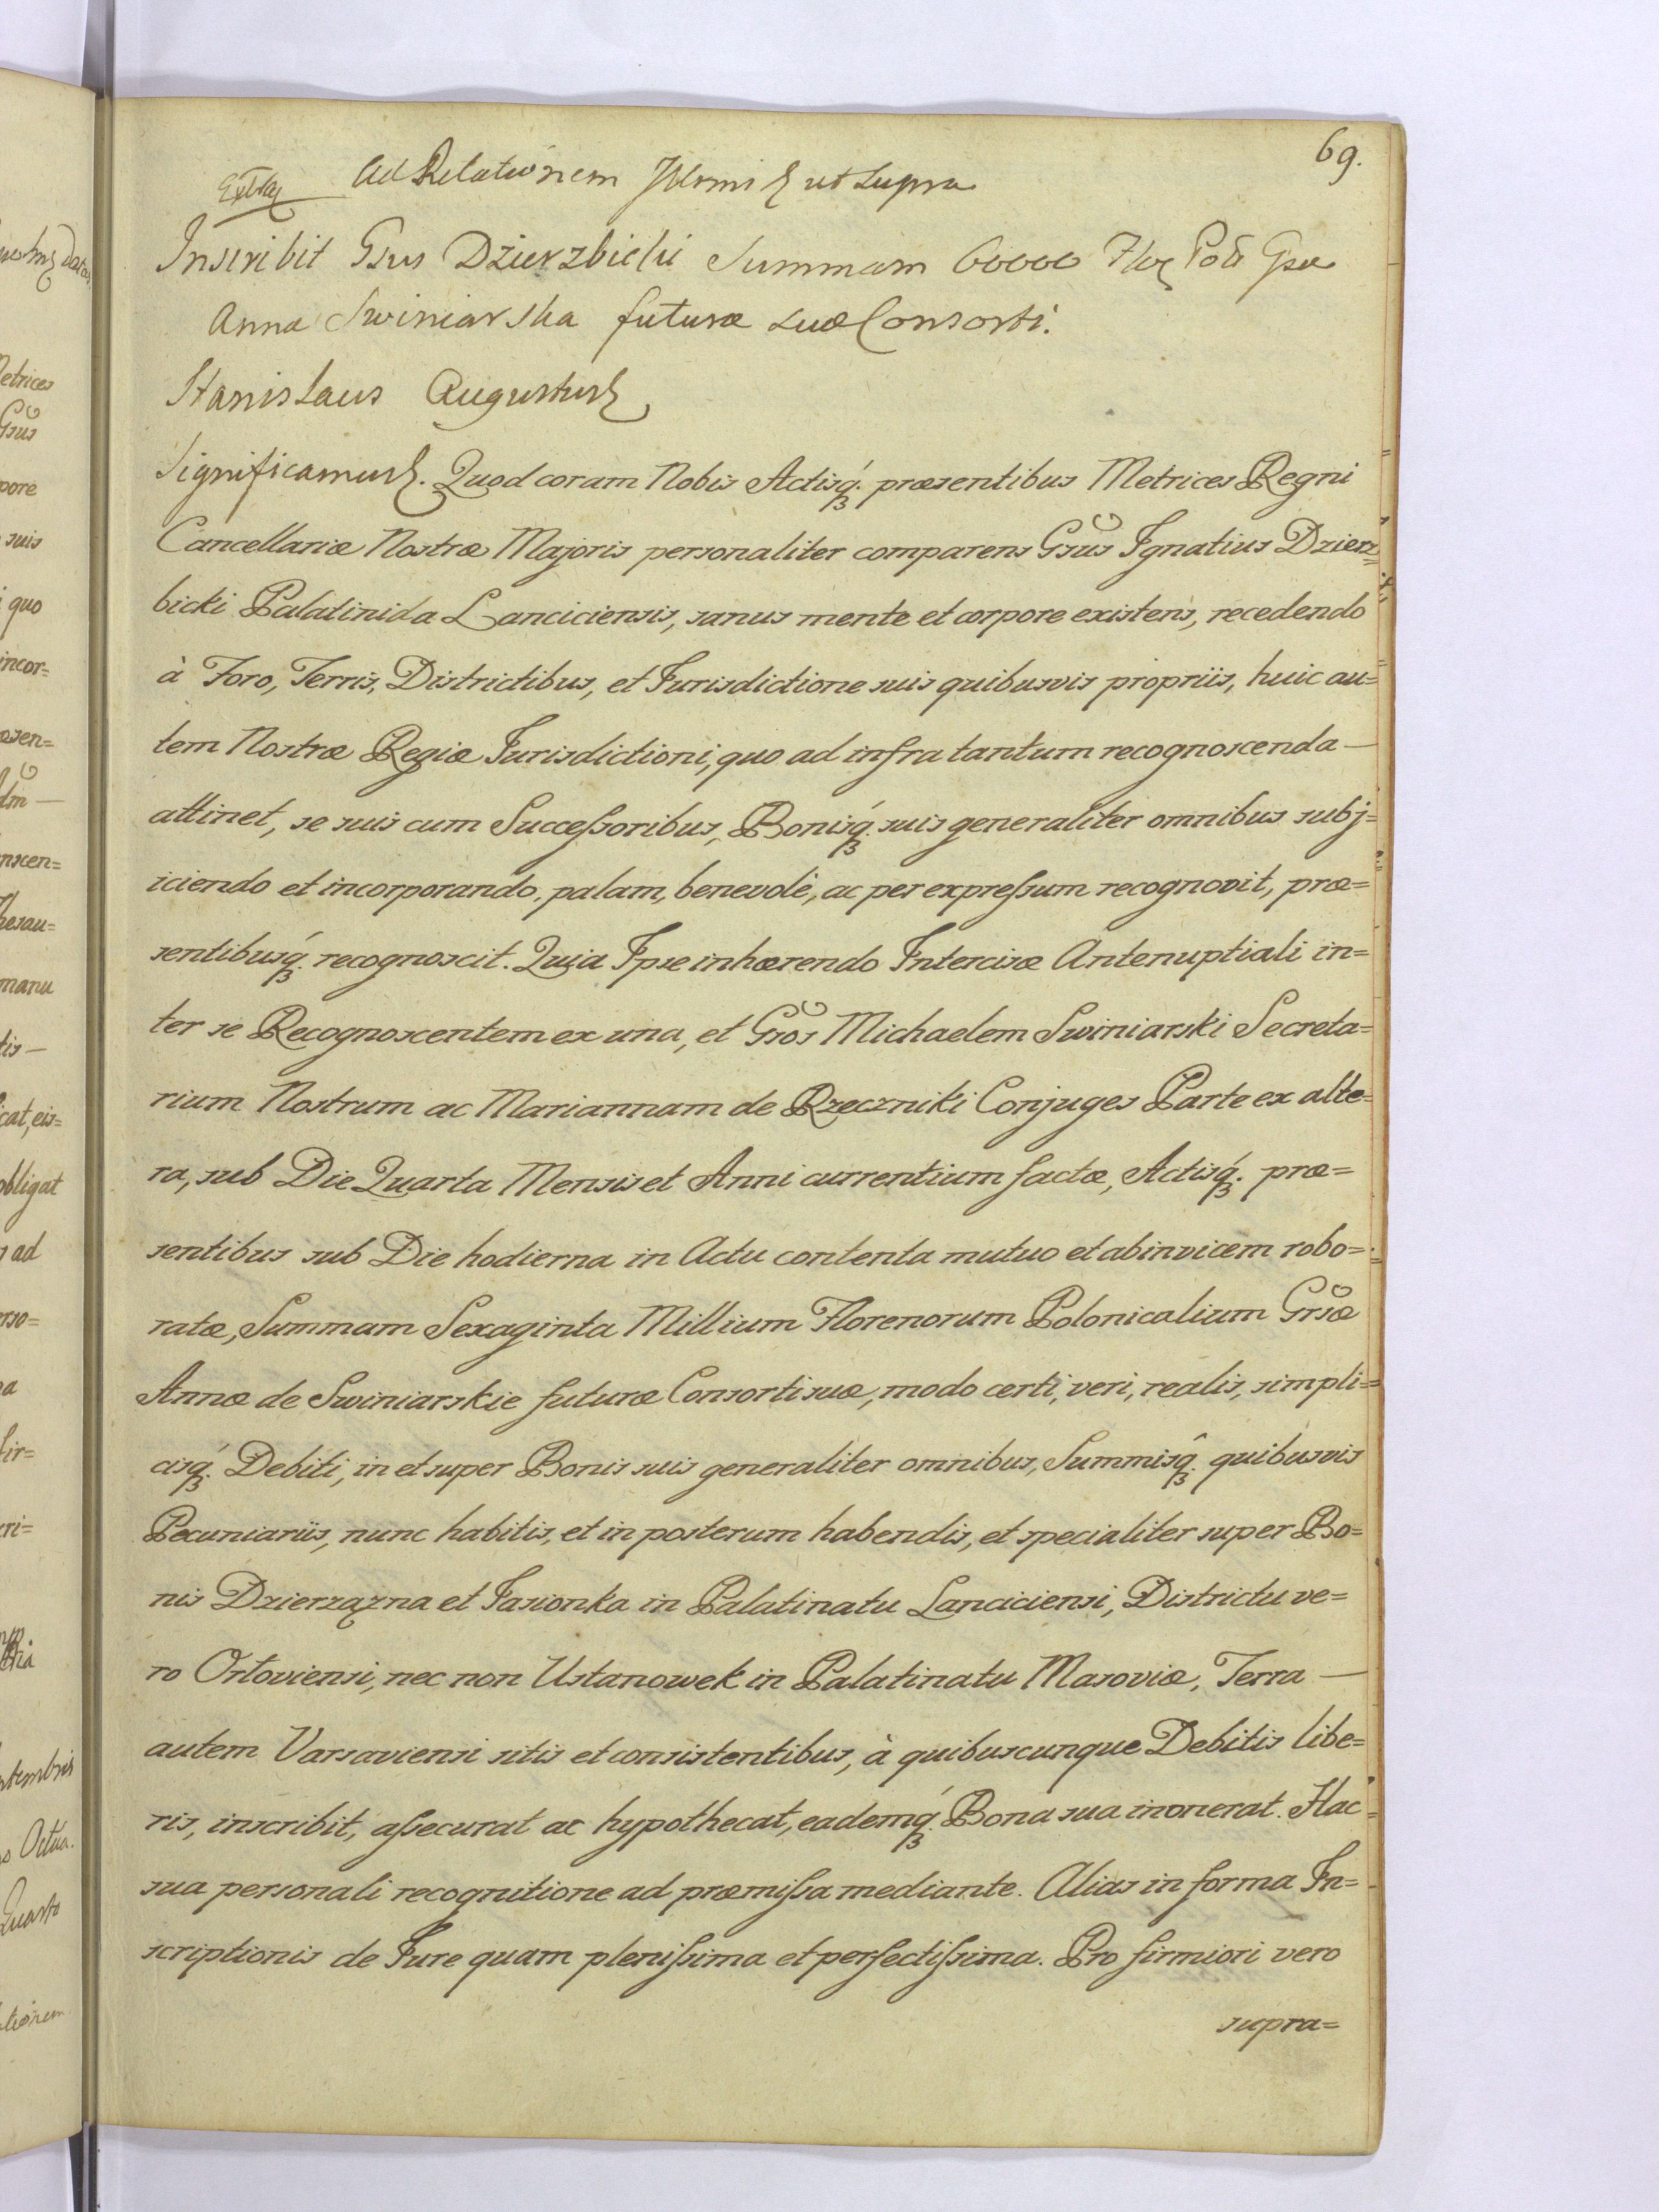 69.
Ad Relationem ut supra
Inscribit Gsus Dzierzbicki Summam 60000 Flor Pol Gsæ
Anna Swiniarska futuræ suæ Consorti.
Stanislaus Augustus
Significamus. Quod coram Nobis Actisq́. præsentibus Metrices Regni
Cancellariæ Nostræ Majoris personaliter comparens Gsus Ignatius Dzierz=
bicki Palatinida Lanciciensis, sanus mente et corpore existens, recedendo
à Foro, Terris, Districtibus, et Jurisdictione suis quibusvis propriis, huic au=
tem Nostræ Regiæ Jurisdictioni, quo ad infra tantum recognoscenda —
attinet, se suis cum Successoribus, Bonisq́. suis generaliter omnibus subj=
iciendo et incorporando, palam, benevolè, ac per expressum recognovit, præ=
sentibusq́. recognoscit. Quia Ipse inhærendo Intercisæ Antenuptiali in=
ter se Recognoscentem ex una, et Gsos Michaelem Swiniarski Secreta=
rium Nostrum ac Mariannam de Rzeczniki Conjuges Parte ex alte=
ra, sub Die Quarta Mensis et Anni currentium factæ, Actisq́. præ=
sentibus sub Die hodierna in Actu contenta mutuo et abinvicem robo=
ratæ, Summam Sexaginta Millium Florenorum Polonicalium Grsæ
Annæ de Swiniarskie futuræ Consorti suæ, modo certi, veri, realis, simpli=
cisq́. Debiti, in et super Bonis suis generaliter omnibus, Summisq̂. quibusvis
Pecuniariis, nunc habitis, et in posterum habendis, et specialiter super Bo=
nis Dzierzązna et Jasionka in Palatinatu Lanciciensi, Districtu ve=
ro Orłoviensi, nec non Ustanowek in Palatinatu Masoviæ, Terra —
autem Varsaviensi sitis et consistentibus, à quibuscunque Debitis libe=
ris, inscribit, assecurat ac hypothecat, eademq́. Bona sua inonerat. Hac
sua personali recognitione ad præmissa mediante. Alias in forma In=
scriptionis de Jure quam plenissima et perfectissima. Pro firmiori vero
supra=